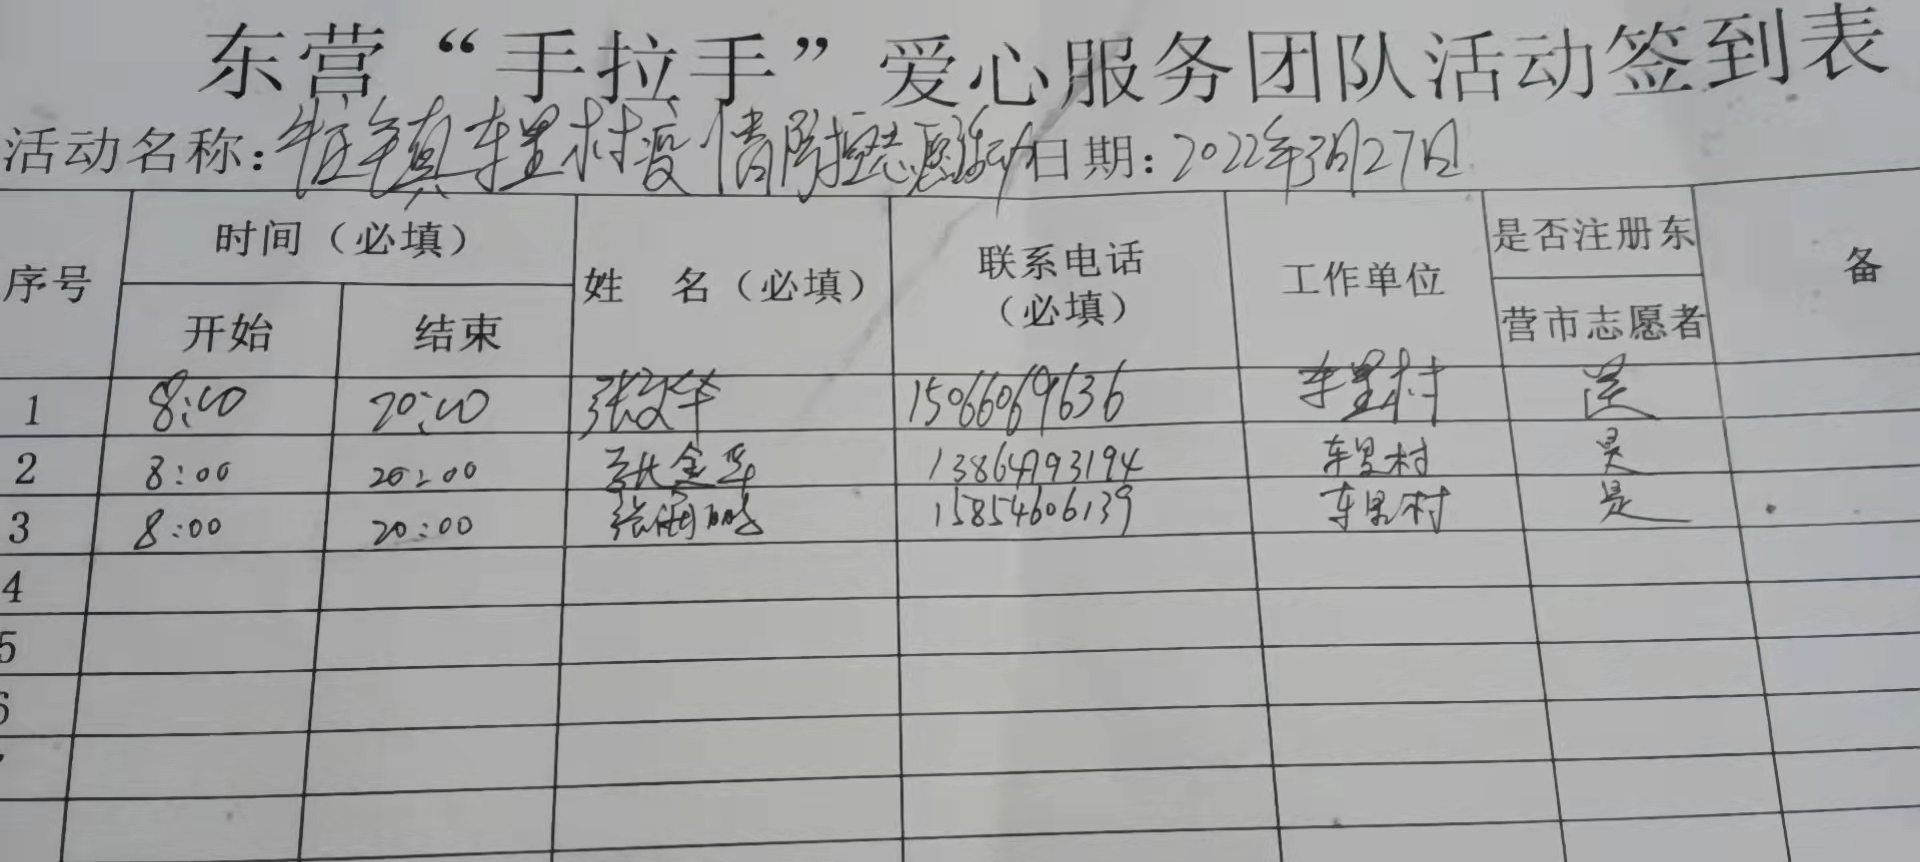 东营“手拉手”爱心服务团队活动签到表
活动名称：牛庄镇车里村疫情防控志愿活动 日期：2022年3月27日
序号 时间（必填） 姓 名（必填） 联系电话（必填） 工作单位 是否注册东营市志愿者 备
开始 结束
1 8:00 20:00 张文华 15066069636 车里村 是
2 8:00 20:00 张金华 13864793194 车里村 是
3 8:00 20:00 张 15854606139 车里村 是
4
5
6